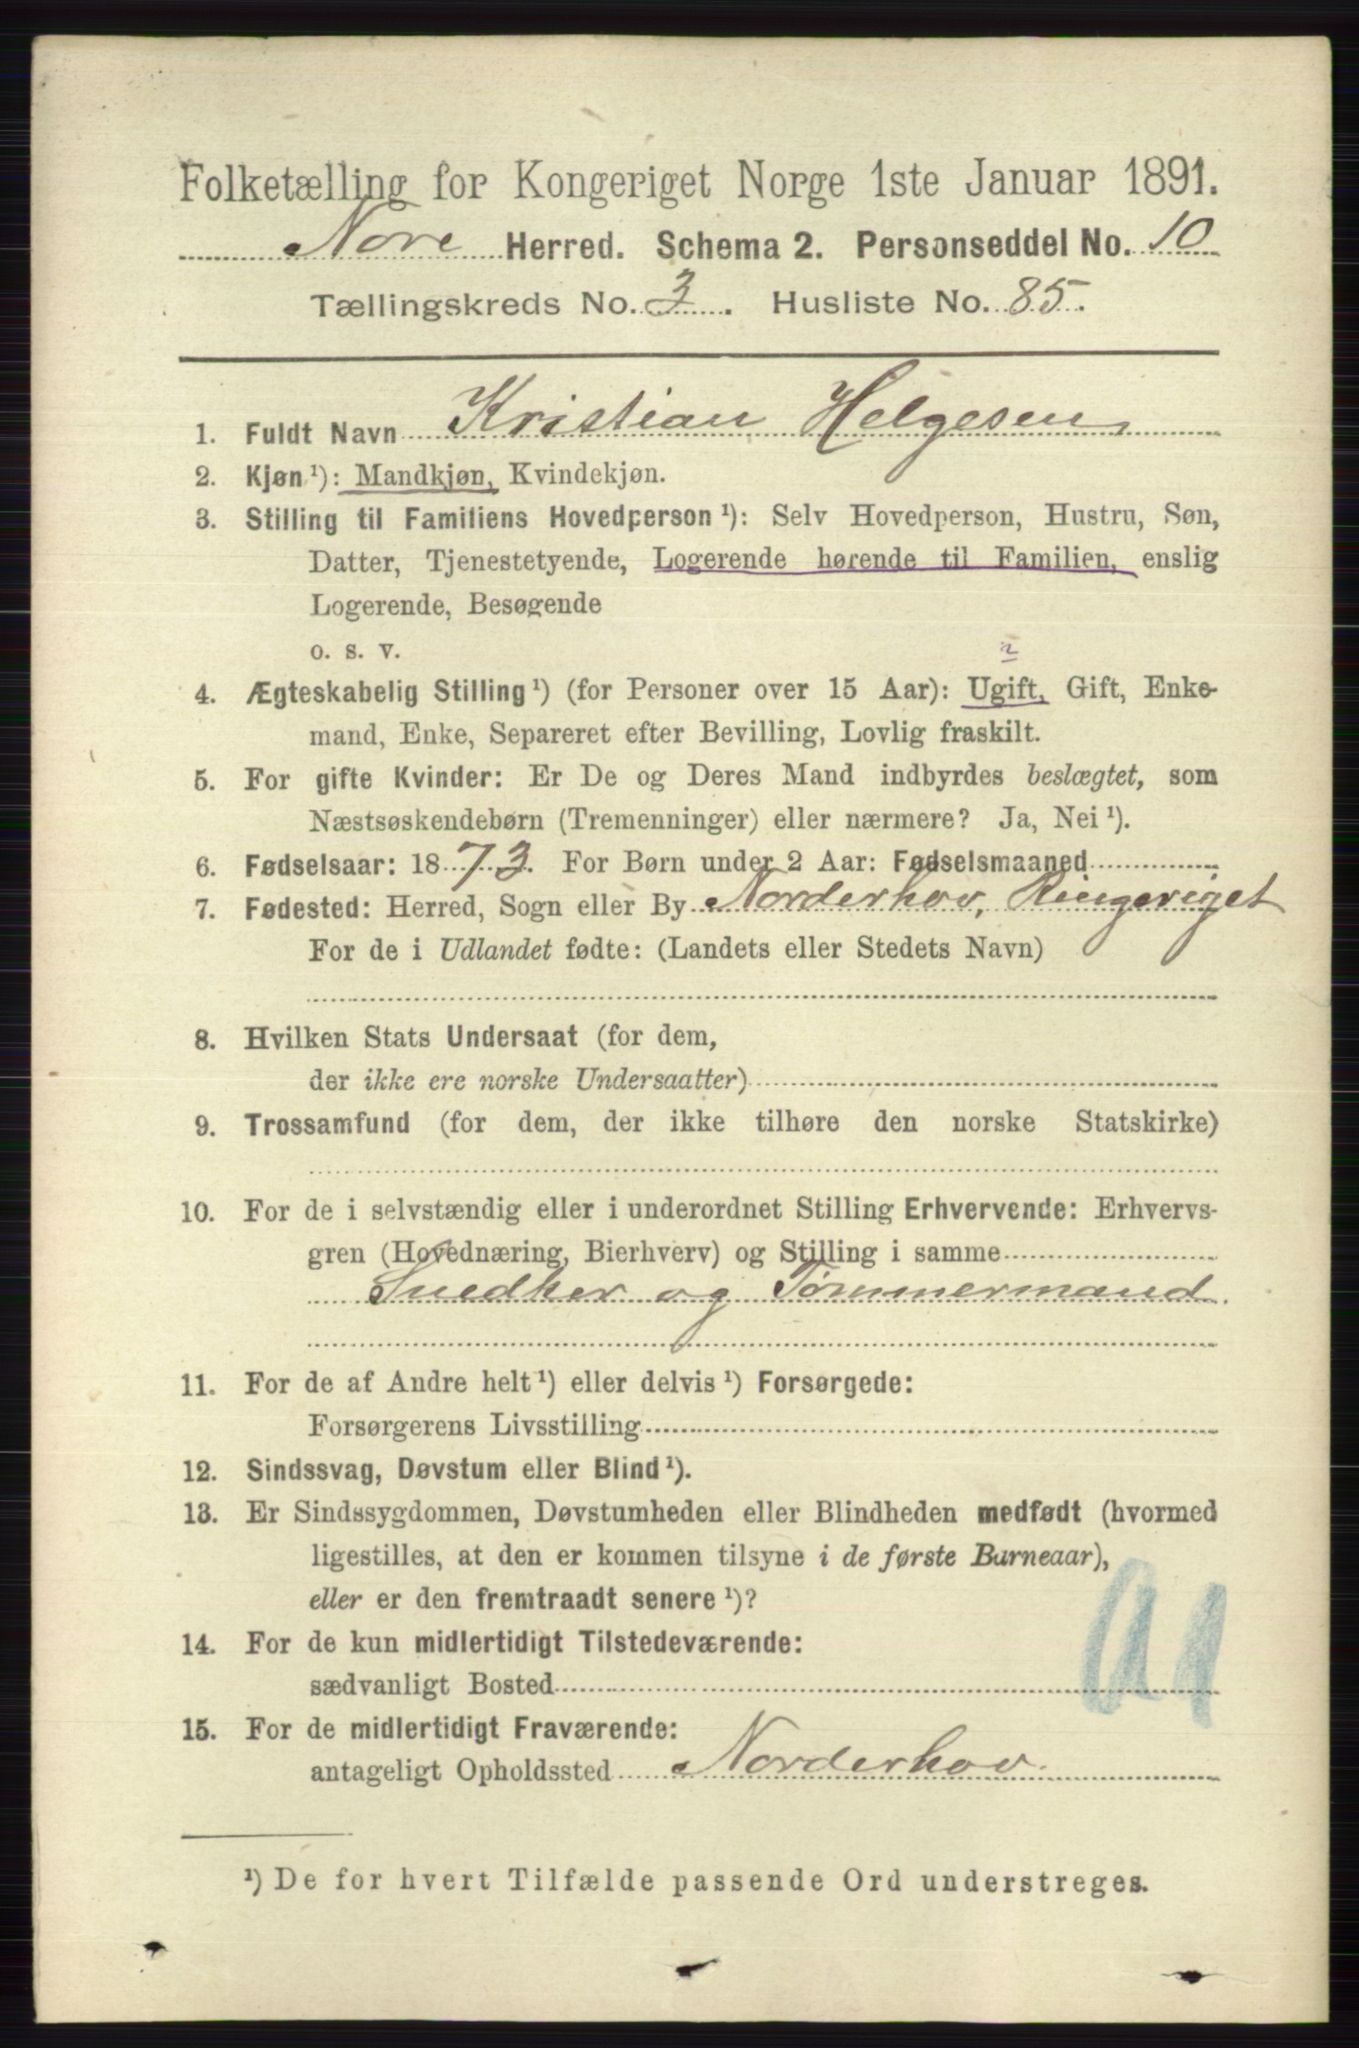 Folketælling for Kongeriget Norge 1ste Januar 1891.
Nore Herred. Schema 2. Personseddel No. 10
Tællingskreds No. 3. Husliste No. 85.
1. Fuldt Navn Kristian Helgesen
2. Kjøn ¹): Mandkjøn, Kvindekjøn.
3. Stilling til Familiens Hovedperson ¹): Selv Hovedperson, Hustru, Søn,
Datter, Tjenestetyende, Logerende hørende til Familien, enslig
Logerende, Besøgende
o. s. v.
4. Ægteskabelig Stilling ¹) (for Personer over 15 Aar): Ugift, Gift, Enke-
mand, Enke, Separeret efter Bevilling, Lovlig fraskilt.
5. For gifte Kvinder: Er De og Deres Mand indbyrdes beslægtet, som
Næstsøskendebørn (Tremenninger) eller nærmere? Ja, Nei ¹).
6. Fødselsaar: 1873. For Børn under 2 Aar: Fødselsmaaned
7. Fødested: Herred, Sogn eller By Norderhov, Ringeriget
For de i Udlandet fødte: (Landets eller Stedets Navn)
8. Hvilken Stats Undersaat (for dem,
der ikke ere norske Undersaatter)
9. Trossamfund (for dem, der ikke tilhøre den norske Statskirke)
10. For de i selvstændig eller i underordnet Stilling Erhvervende: Erhvervs-
gren (Hovednæring, Bierhverv) og Stilling i samme
Snedker og Tømmermand.
11. For de af Andre helt ¹) eller delvis ¹) Forsørgede:
Forsørgerens Livsstilling
12. Sindssvag, Døvstum eller Blind ¹).
13. Er Sindssygdommen, Døvstumheden eller Blindheden medfødt (hvormed
ligestilles, at den er kommen tilsyne i de første Barneaar),
eller er den fremtraadt senere ¹)?
14. For de kun midlertidigt Tilstedeværende:
sædvanligt Bosted
15. For de midlertidigt Fraværende:
antageligt Opholdssted Norderhov.
¹) De for hvert Tilfælde passende Ord understreges.